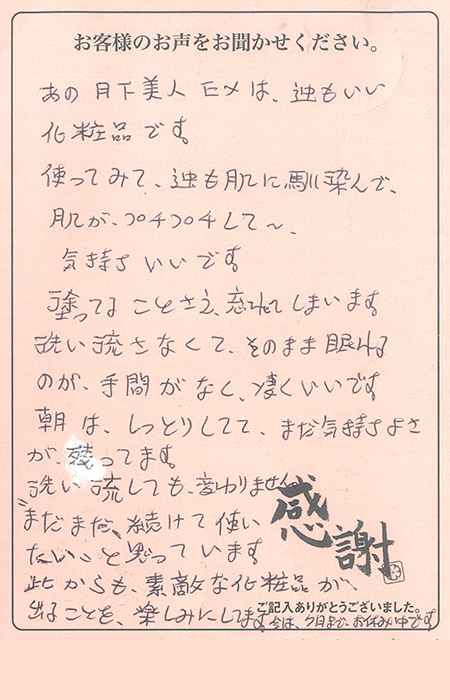 お客様のお声をお聞かせください。
あの 月下美人 ヒメは、迚もいい
化粧品です
使ってみて、迚も肌に馴染んで、
肌が、プチプチして〜、
気持ちいいです
塗ってることさえ、忘れてしまいます
洗い流さなくて、そのまま眠れる
のが、手間がなく、凄くいいです
朝は、しっとりしてて、まだ気持ちよさ
が、残ってます
洗い流しても、変わりません
まだまだ、続けて使い
たいと思っています
此からも、素敵な化粧品が、
出ることを、楽しみにしてます
感謝
ご記入ありがとうございました。
今は、 月まで、お休み中です